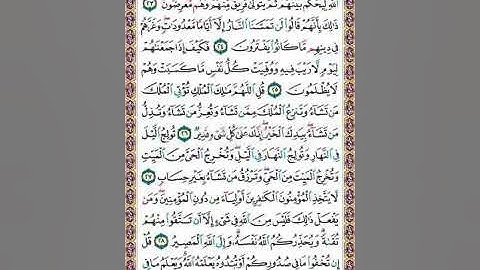 اللَّهِ لِيَحْكُمَ بَيْنَهُمْ ثُمَّ يَتَوَلَّىٰ فَرِيقٌ مِّنْهُمْ وَهُم مُّعْرِضُونَ ٢٣
ذَٰلِكَ بِأَنَّهُمْ قَالُوا لَن تَمَسَّنَا النَّارُ إِلَّا أَيَّامًا مَّعْدُودَاتٍ وَغَرَّهُمْ
فِي دِينِهِم مَّا كَانُوا يَفْتَرُونَ ٢٤ فَكَيْفَ إِذَا جَمَعْنَاهُمْ
لِيَوْمٍ لَّا رَيْبَ فِيهِ وَوُفِّيَتْ كُلُّ نَفْسٍ مَّا كَسَبَتْ وَهُمْ
لَا يُظْلَمُونَ ٢٥ قُلِ اللَّهُمَّ مَالِكَ الْمُلْكِ تُؤْتِي الْمُلْكَ
مَن تَشَاءُ وَتَنزِعُ الْمُلْكَ مِمَّن تَشَاءُ وَتُعِزُّ مَن تَشَاءُ وَتُذِلُّ
مَن تَشَاءُ بِيَدِكَ الْخَيْرُ إِنَّكَ عَلَىٰ كُلِّ شَيْءٍ قَدِيرٌ ٢٦ تُولِجُ اللَّيْلَ
فِي النَّهَارِ وَتُولِجُ النَّهَارَ فِي اللَّيْلِ وَتُخْرِجُ الْحَيَّ مِنَ الْمَيِّتِ
وَتُخْرِجُ الْمَيِّتَ مِنَ الْحَيِّ وَتَرْزُقُ مَن تَشَاءُ بِغَيْرِ حِسَابٍ ٢٧
لَّا يَتَّخِذِ الْمُؤْمِنُونَ الْكَافِرِينَ أَوْلِيَاءَ مِن دُونِ الْمُؤْمِنِينَ وَمَن
يَفْعَلْ ذَٰلِكَ فَلَيْسَ مِنَ اللَّهِ فِي شَيْءٍ إِلَّا أَن تَتَّقُوا مِنْهُمْ
تُقَاةً وَيُحَذِّرُكُمُ اللَّهُ نَفْسَهُ وَإِلَى اللَّهِ الْمَصِيرُ ٢٨ قُلْ
إِن تُخْفُوا مَا فِي صُدُورِكُمْ أَوْ تُبْدُوهُ يَعْلَمْهُ اللَّهُ وَيَعْلَمُ مَا فِي